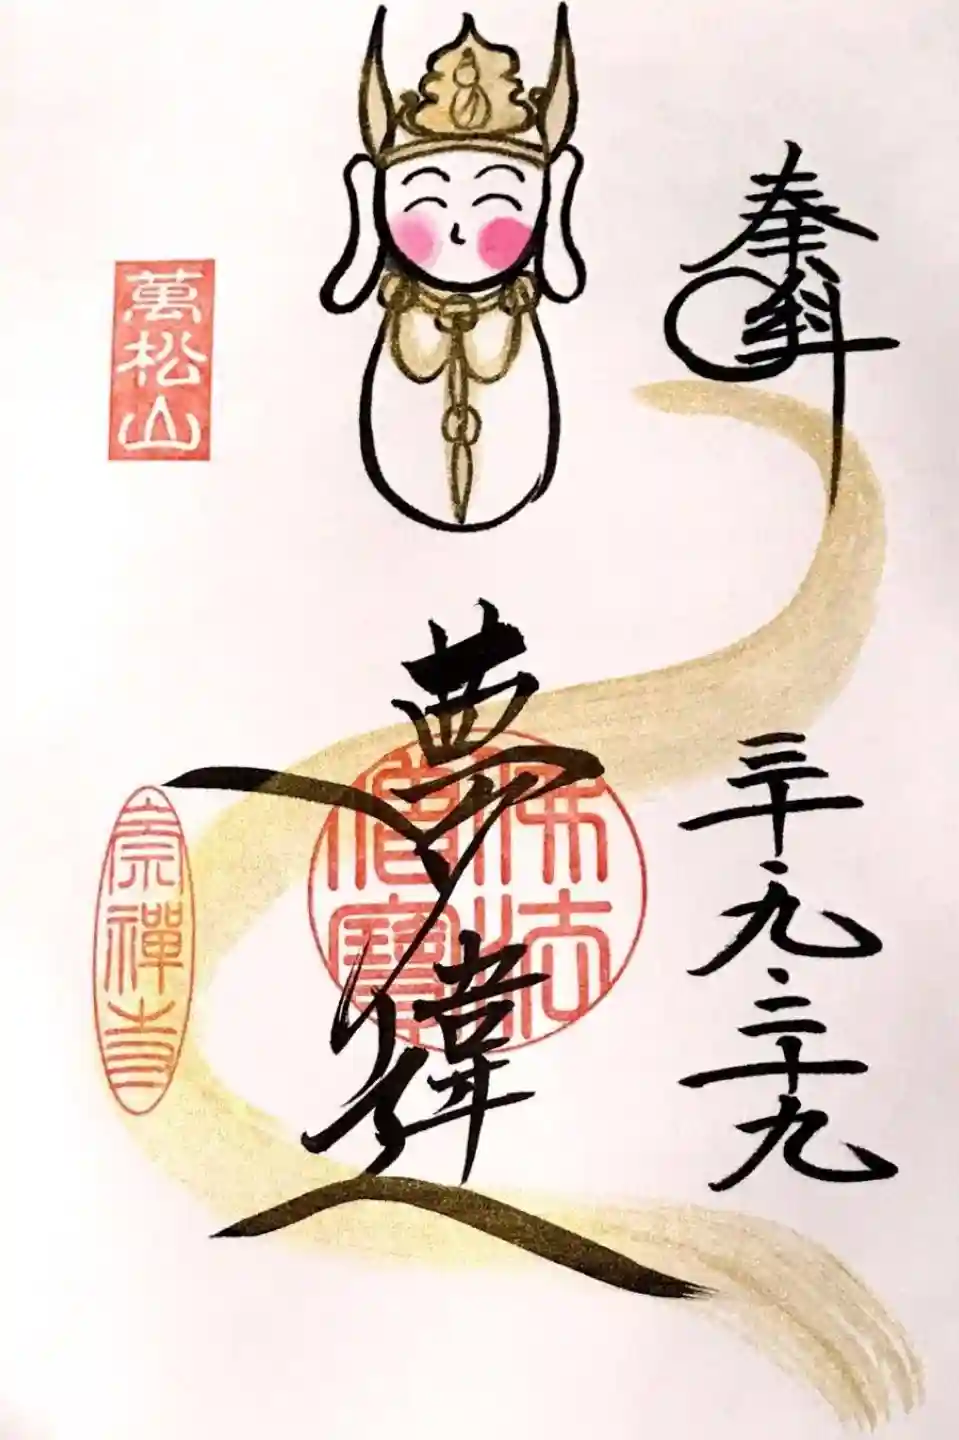 奉拝
三十・九・二十九
夢違
佛法僧寶
萬松山
崇禪寺